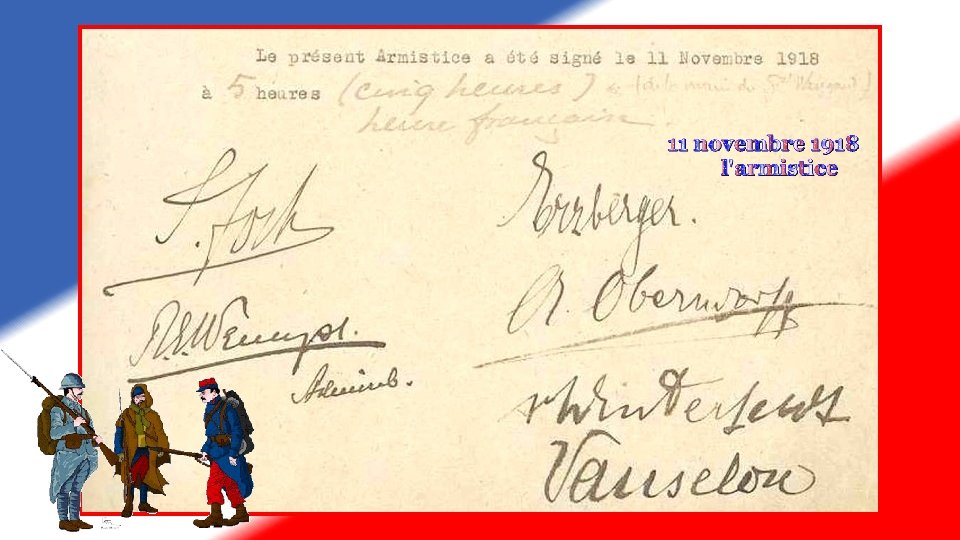 Le présent Armistice a été signé le 11 Novembre 1918
à 5 heures (cinq heures)
heure française.
11 novembre 1918
l'armistice
F. Foch
Erzberger.
A. Oberndorff
R.E. Wemyss.
Admiral.
v Winterfeldt
Vanselow